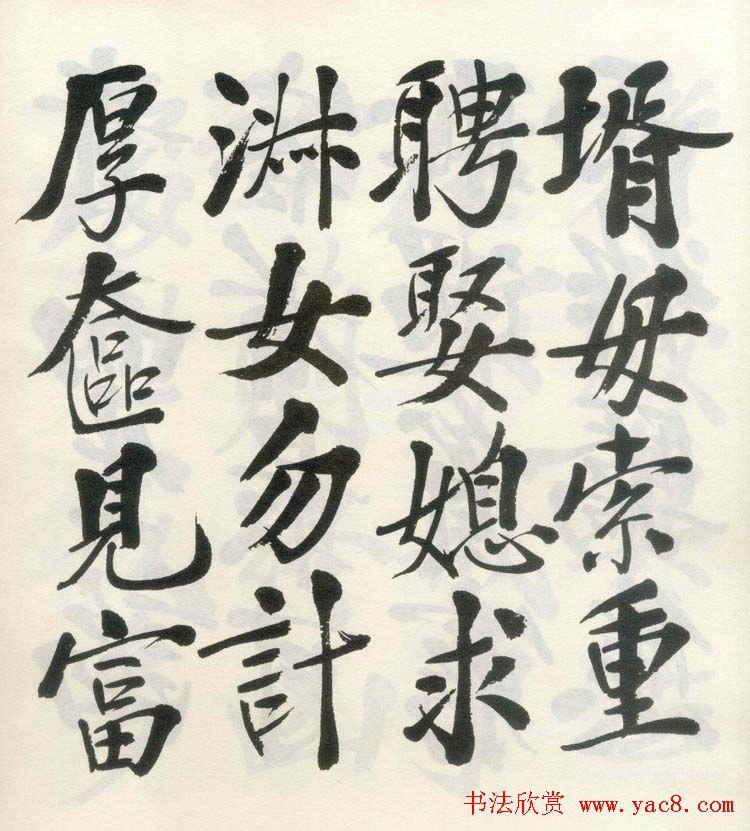 壻毋索重
聘娶媳求
淑女勿計
厚奩見富
书法欣赏 www.yac8.com